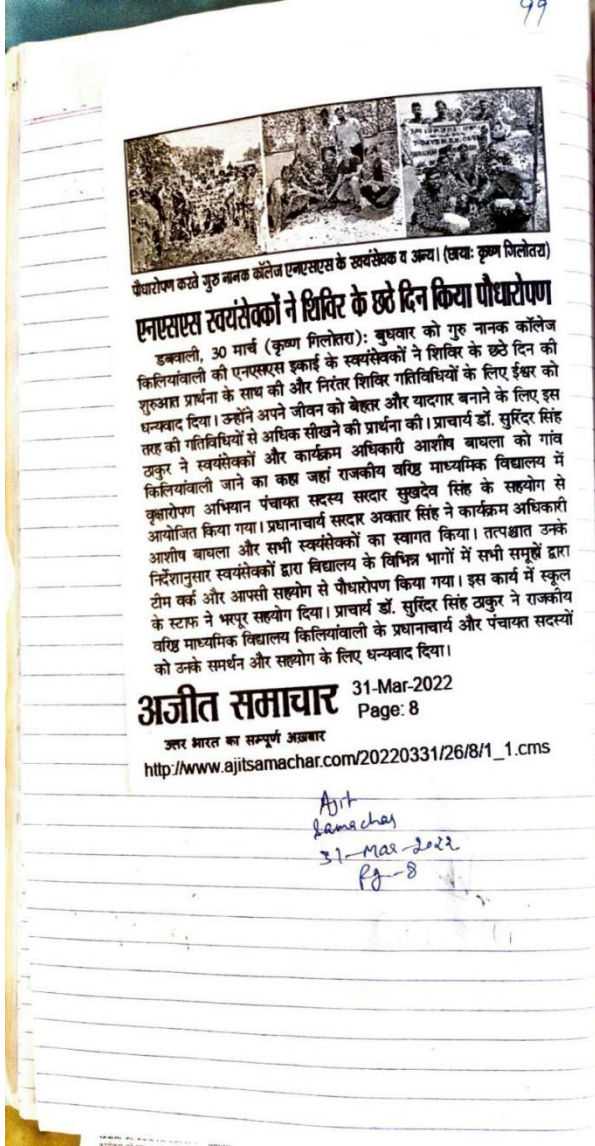 99
पौधारोपण करते गुरु नानक कॉलेज एनएसएस के स्वयंसेवक व अन्य। (छाया: कृष्ण गिलोतरा)
एनएसएस स्वयंसेवकों ने शिविर के छठे दिन किया पौधारोपण
डबवाली, 30 मार्च (कृष्ण गिलोतरा): बुधवार को गुरु नानक कॉलेज
किलियांवाली की एनएसएस इकाई के स्वयंसेवकों ने शिविर के छठे दिन की
शुरुआत प्रार्थना के साथ की और निरंतर शिविर गतिविधियों के लिए ईश्वर को
धन्यवाद दिया। उन्होंने अपने जीवन को बेहतर और यादगार बनाने के लिए इस
तरह की गतिविधियों से अधिक सीखने की प्रार्थना की। प्राचार्य डॉ. सुरिंदर सिंह
ठाकुर ने स्वयंसेवकों और कार्यक्रम अधिकारी आशीष बाघला को गांव
किलियांवाली जाने का कहा जहां राजकीय वरिष्ठ माध्यमिक विद्यालय में
वृक्षारोपण अभियान पंचायत सदस्य सरदार सुखदेव सिंह के सहयोग से
आयोजित किया गया। प्रधानाचार्य सरदार अवतार सिंह ने कार्यक्रम अधिकारी
आशीष बाघला और सभी स्वयंसेवकों का स्वागत किया। तत्पश्चात उनके
निर्देशानुसार स्वयंसेवकों द्वारा विद्यालय के विभिन्न भागों में सभी समूहों द्वारा
टीम वर्क और आपसी सहयोग से पौधारोपण किया गया। इस कार्य में स्कूल
के स्टाफ ने भरपूर सहयोग दिया। प्राचार्य डॉ. सुरिंदर सिंह ठाकुर ने राजकीय
वरिष्ठ माध्यमिक विद्यालय किलियांवाली के प्रधानाचार्य और पंचायत सदस्यों
को उनके समर्थन और सहयोग के लिए धन्यवाद दिया।
अजीत समाचार 31-Mar-2022
Page: 8
उत्तर भारत का सम्पूर्ण अख़बार
http://www.ajitsamachar.com/20220331/26/8/1_1.cms
Ajit
Samachar
31-Mar-2022
Pg-8